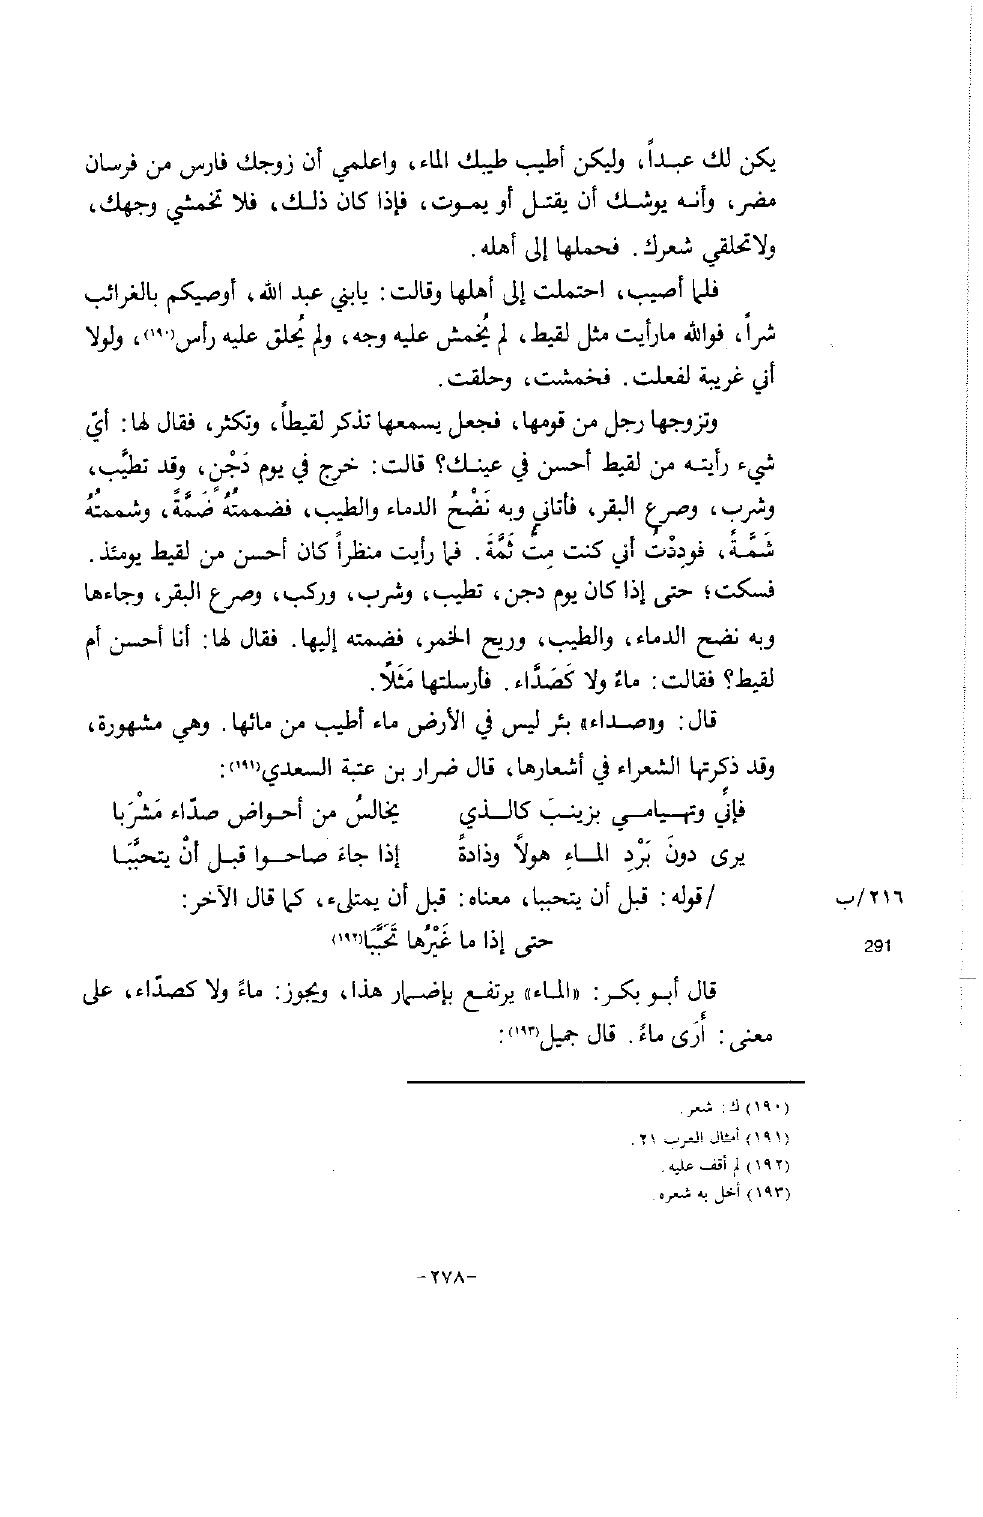 يكن لك عبداً، وليكن أطيب طيبك الماء، واعلمي أن زوجك فارس من فرسان
مضر، وأنه يوشك أن يقتل أو يموت، فإذا كان ذلك، فلا تخمشي وجهك،
ولاتحلقي شعرك. فحملها إلى أهله.
فلما أصيب، احتملت إلى أهلها وقالت: يابني عبد الله، أوصيكم بالغرائب
شراً، فوالله مارأيت مثل لقيط، لم يُخمش عليه وجه، ولم يُحلق عليه رأس(١٩٠)، ولولا
أني غريبة لفعلت. فخمشت، وحلقت.
وتزوجها رجل من قومها، فجعل يسمعها تذكر لقيطاً، وتكثر، فقال لها: أيّ
شيء رأيته من لقيط أحسن في عينك؟ قالت: خرج في يوم دَجْن، وقد تطيَّب،
وشرب، وصرع البقر، فأتاني وبه نَضْحُ الدماء والطيب، فضممتُهُ ضَمَّةً، وشممتُهُ
شَمَّةً، فوددْتُ أني كنت مِتُّ ثَمَّةَ. فما رأيت منظراً كان أحسن من لقيط يومئذ.
فسكت؛ حتى إذا كان يوم دجن، تطيب، وشرب، وركب، وصرع البقر، وجاءها
وبه نضح الدماء، والطيب، وريح الخمر، فضمته إليها. فقال لها: أنا أحسن أم
لقيط؟ فقالت: ماءٌ ولا كَصَدَّاء. فأرسلتها مَثَلاً.
قال: و«صداء» بئر ليس في الأرض ماء أطيب من مائها. وهي مشهورة،
وقد ذكرتها الشعراء في أشعارها، قال ضرار بن عتبة السعدي(١٩١):
فإنّي وتهيامي بزينبَ كالذي يخالسُ من أحواض صدّاء مَشْربا
يرى دونَ بَرْدِ الماءِ هولاً وذادةً إذا جاءَ صاحوا قبل أنْ يتحبَّبَا
/قوله: قبل أن يتحببا، معناه: قبل أن يمتلىء، كما قال الآخر:
٢١٦/ب
حتى إذا ما غَيْرُها تَحَبَّبَا(١٩٢)
291
قال أبو بكر: «الماء» يرتفع بإضمار هذا، ويجوز: ماءً ولا كصدّاء، على
معنى: أَرَى ماءً. قال جميل(١٩٣):
(١٩٠) ك: شعر.
(١٩١) أمثال العرب ٢١.
(١٩٢) لم أقف عليه.
(١٩٣) أخل به شعره.
-٢٧٨-